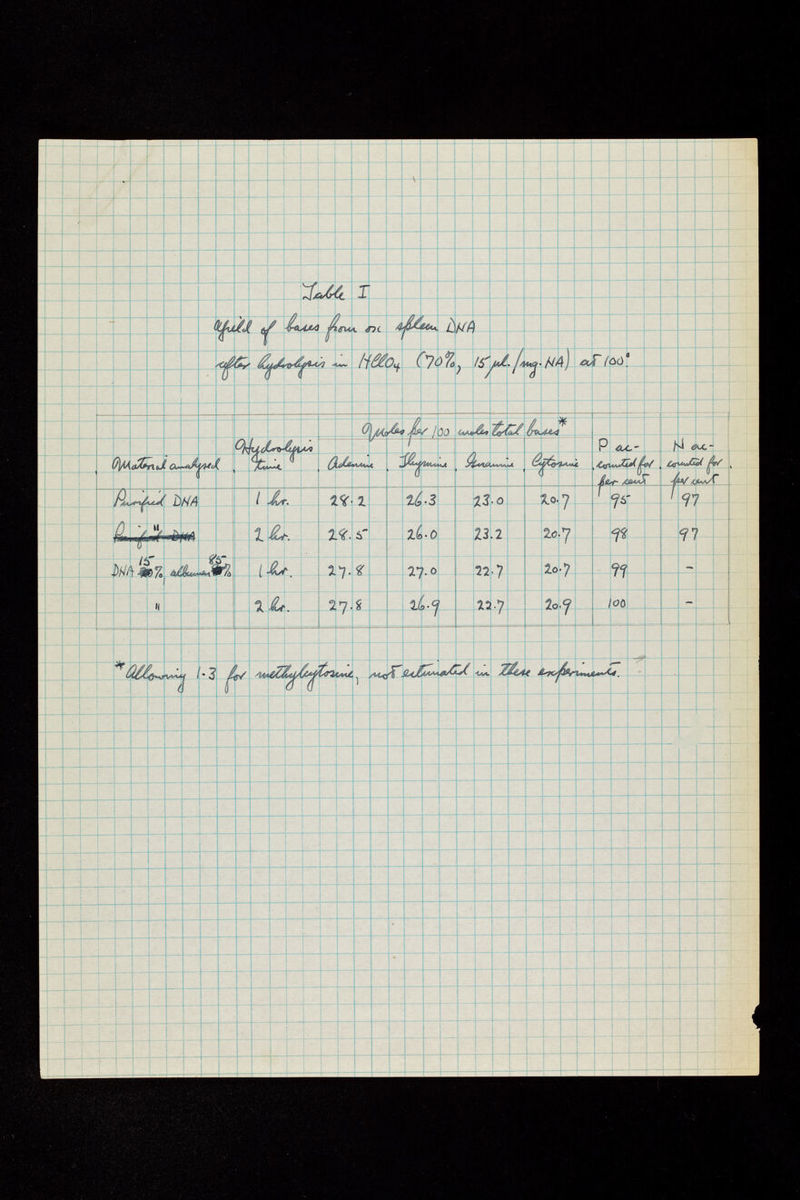 Table I
Yield of bases from ox spleen DNA
after hydrolysis in HClO4 (70%, 15 µl./mg. NA) at 100°.
Moles per 100 moles total bases*
Material analysed Hydrolysis time Adenine Thymine Guanine Cytosine P ac-counted for per cent N ac-counted for per cent
Purified DNA 1 hr. 28.2 26.3 23.0 20.7 95 97
" 2 hr. 28.5 26.0 23.2 20.7 98 97
DNA 15%, albumen 85% 1 hr. 27.8 27.0 22.7 20.7 99 -
" 2 hr. 27.8 26.9 22.7 20.9 100 -
*Allowing 1.3 for methylcytosine, not estimated in these experiments.